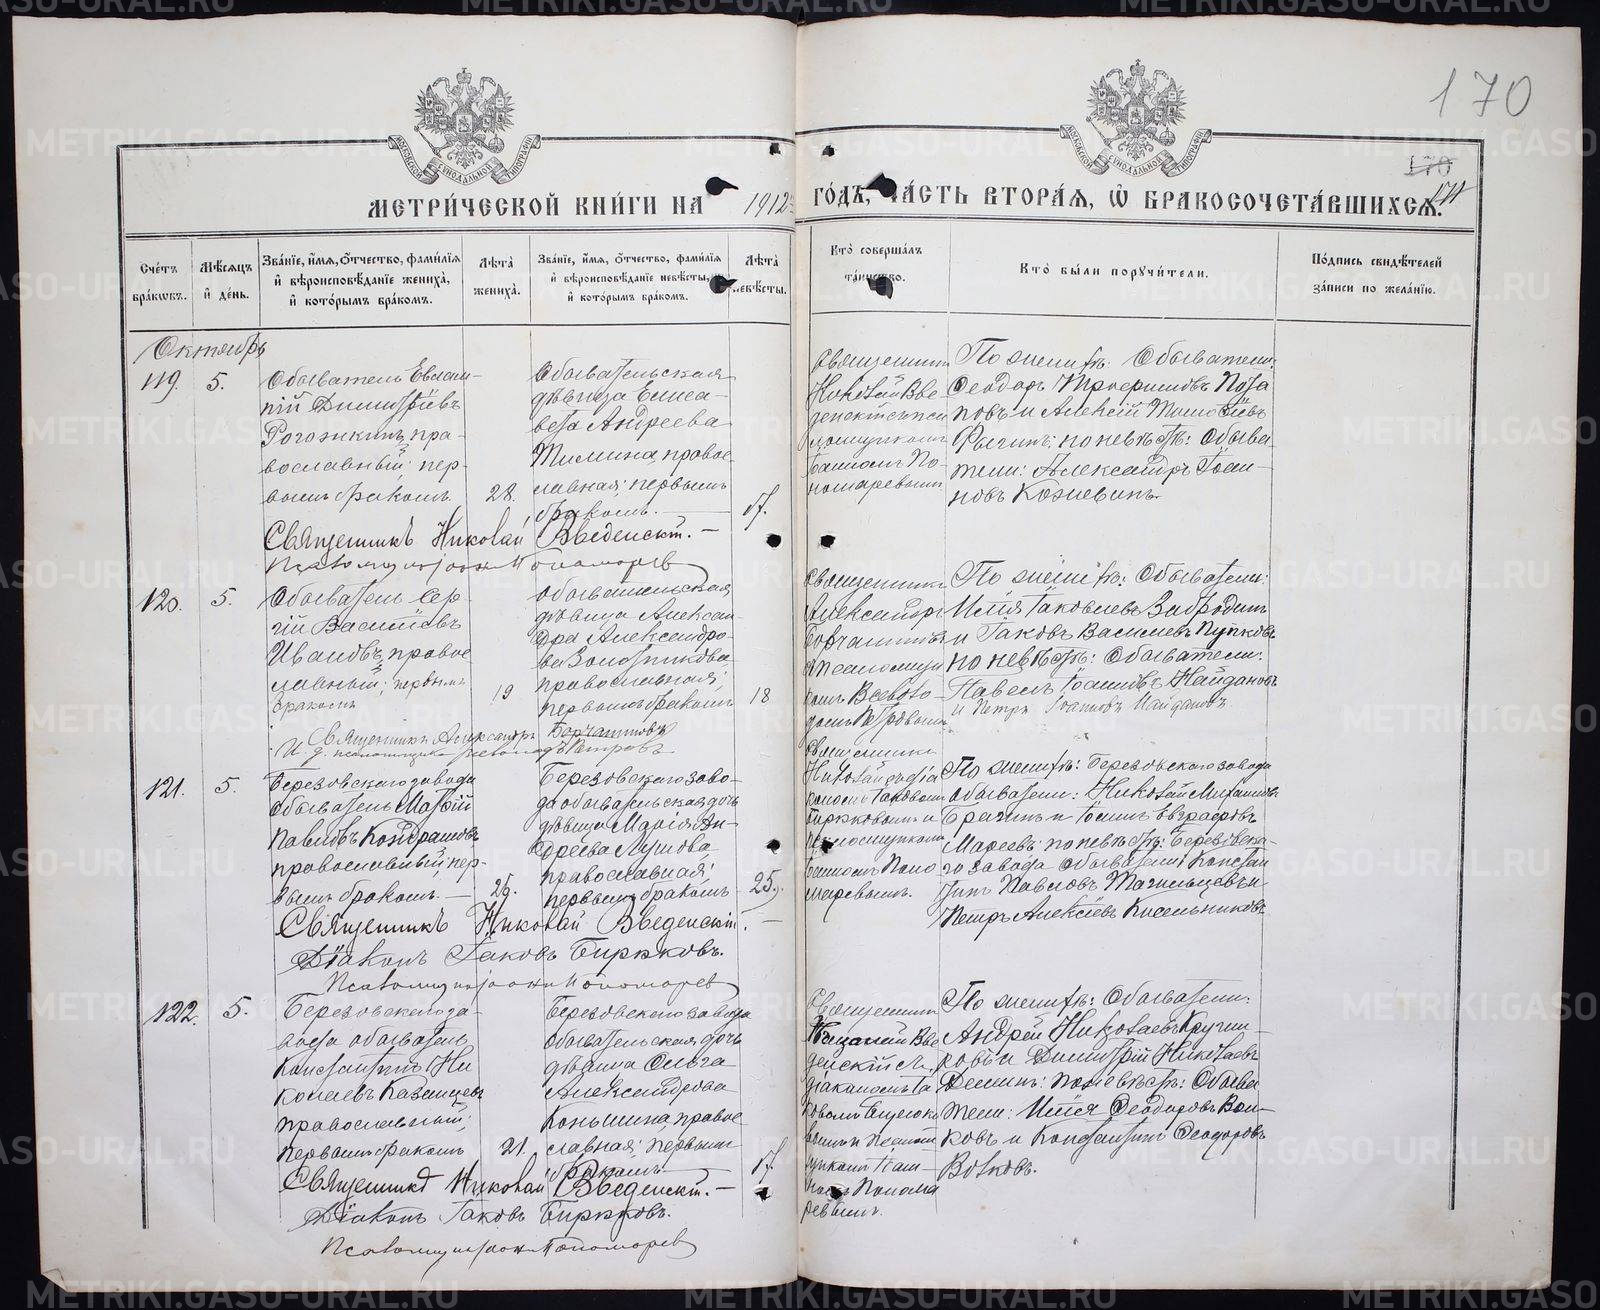 170
170
171
МОСКОВСКОЙ СИНОДАЛЬНОЙ ТИПОГРАФІИ
МОСКОВСКОЙ СИНОДАЛЬНОЙ ТИПОГРАФІИ
МЕТРИ́ЧЕСКОЙ КНИ́ГИ НА 1912 ГО́ДЪ, ЧА́СТЬ ВТОРА́Ѧ, Ѡ҆ БРАКОСОЧЕТА́ВШИХСѦ.
Сче́тъ бра́кѡвъ.
Мѣ́сѧцъ и҆ де́нь.
Зва́нїе, и҆́мѧ, ѻ҆́тчество, фами́лїѧ и҆ вѣроисповѣ́данїе жениха̀, и҆ кото́рымъ бра́комъ.
Лѣ́та жениха̀.
Зва́нїе, и҆́мѧ, ѻ҆́тчество, фами́лїѧ и҆ вѣроисповѣ́данїе невѣ́сты, и҆ кото́рымъ бра́комъ.
Лѣ́та невѣ́сты.
Кто̀ соверша́лъ та́инство.
Кто̀ бы́ли порꙋчи́тели.
По́дпись свидѣ́телей за́писи по жела́нїю.
Октябрь
119.
5.
Обыватель Евлам-
пій Димитріевъ
Рогожкинъ, пра-
вославный; пер-
вымъ бракомъ.
28.
Обывательская
дѣвица Елиса-
вета Андреева
Тимина, право
славная; первымъ
бракомъ. —
17.
Священникъ
Николай Вве
денскій съ псал
мщикомъ
Іоанномъ По-
номаревымъ
По женихѣ: Обыватели:
Ѳеодоръ Трофимовъ Пота
повъ и Алексій Тимоѳіевъ
по невѣстѣ: Обыва
тели: Александръ Іоан-
новъ
Священникъ Николай Введенскій. —
Псаломщикъ Іоаннъ Пономаревъ
120.
5.
Обыватель Сер-
гій Василіевъ
Ивановъ, право
славный; первымъ
бракомъ
19
Обывательская
дѣвица Алексан
дра Александро-
ва Золотникова
православная;
первымъ бракомъ
18
Священникъ
Александръ
и псаломщи
комъ Всеволо-
домъ Петровымъ
По женихѣ: Обыватели:
Илія Іаковлевъ Забродинъ
и Іаковъ Василіевъ Пупковъ
по невѣстѣ: Обыватели:
Павелъ Іоанновъ Найдановъ
и Петръ Іоанновъ Найдановъ.
Священникъ Александръ
И. д. псаломщика Всеволодъ Петровъ
121.
5.
Березовскаго завода
обыватель Матѳій
Павловъ Кондрашовъ
православный, пер-
вымъ бракомъ. —
26.
Березовскаго заво-
да обывательская дочь
дѣвица Марія Ан-
дреева
православная;
первымъ бракомъ
25.
Священникъ
Николай съ діа
кономъ Іаковомъ
Бирюковымъ и
псаломщикомъ
Іоанномъ Поно
маревымъ.
По женихѣ: Березовскаго завода
обыватели: Николай Михаиловъ
Брагинъ и Іоаннъ Евграфовъ
Марѣевъ: по невѣстѣ: Березовска
го завода обыватели: Констан
тинъ Павловъ Тагильцевъ и
Петръ Алексіевъ Кисельниковъ
Священникъ Николай Введенскій. —
Діаконъ Іаковъ Бирюковъ.
Псаломщикъ Іоаннъ Пономаревъ
122.
5.
Березовскаго за-
вода обыватель
Константинъ Ни
колаевъ Казанцевъ
православный;
первымъ бракомъ
21.
Березовскаго завода
обывательская дочь
дѣвица Ольга
Александрова
Коньшина, право
славная; первымъ
бракомъ
17.
Священникъ
Николай Вве
денскій съ
діакономъ Іа
ковомъ Бирюко
вымъ и псалом
щикомъ Іоан-
номъ Понома
ревымъ.
По женихѣ: Обыватели:
Андрей Николаевъ
и Димитрій Николаевъ
по невѣстѣ: Обыва
тели: Илія Ѳеодоровъ Вол-
ковъ и Константинъ Ѳеодоровъ
Волковъ.
Священникъ Николай Введенскій. —
Діаконъ Іаковъ Бирюковъ.
Псаломщикъ Іоаннъ Пономаревъ
METRIKI.GASO-URAL.RU